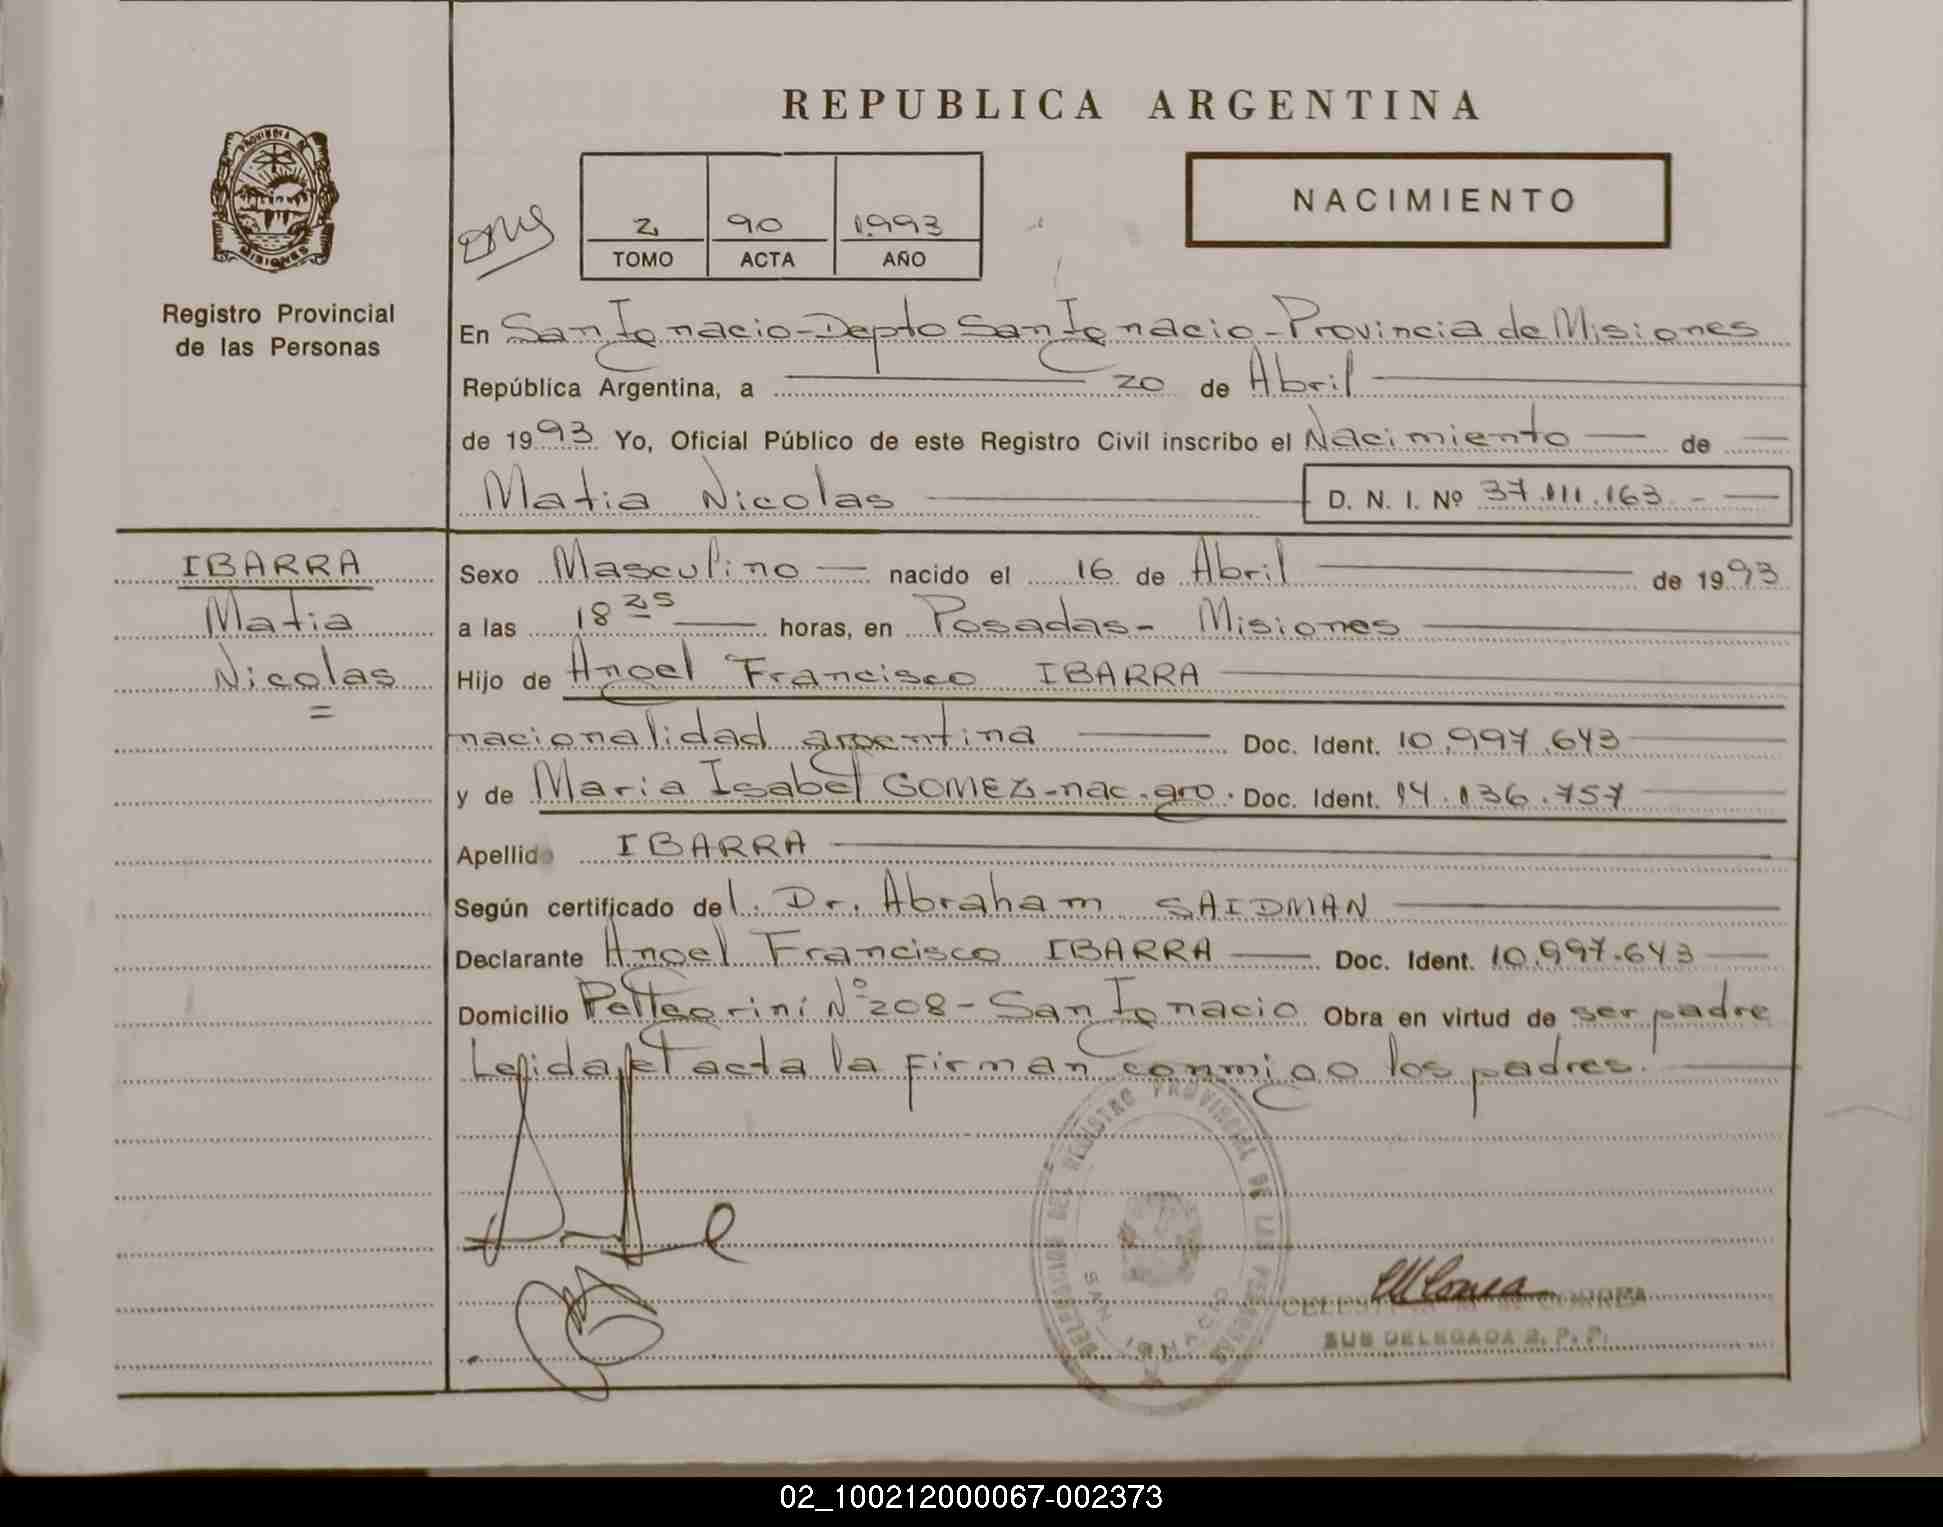 REPUBLICA ARGENTINA
PROVINCIA DE MISIONES
Registro Provincial
de las Personas
2 90 1993
TOMO ACTA AÑO
NACIMIENTO
En San Ignacio-Depto San Ignacio-Provincia de Misiones
República Argentina, a 20 de Abril
de 1993 Yo, Oficial Público de este Registro Civil inscribo el Nacimiento de
Matia Nicolas D. N. I. Nº 37.111.163.-
IBARRA
Matia
Nicolas
Sexo Masculino nacido el 16 de Abril de 1993
a las 18 25 horas, en Posadas- Misiones
Hijo de Angel Francisco IBARRA
nacionalidad argentina Doc. Ident. 10.997.643
y de Maria Isabel GOMEZ-nac.gro. Doc. Ident. 14.136.757
Apellido IBARRA
Según certificado del. Dr. Abraham SAIDMAN
Declarante Angel Francisco IBARRA Doc. Ident. 10.997.643
Domicilio Pellegrini Nº 208-San Ignacio Obra en virtud de ser padre
Leída el acta la firman conmigo los padres.
DELEGACION DEL REGISTRO PROVINCIAL DE LAS PERSONAS
SAN IGNACIO
CORREA
SUB DELEGADA R. P. P.
02_100212000067-002373